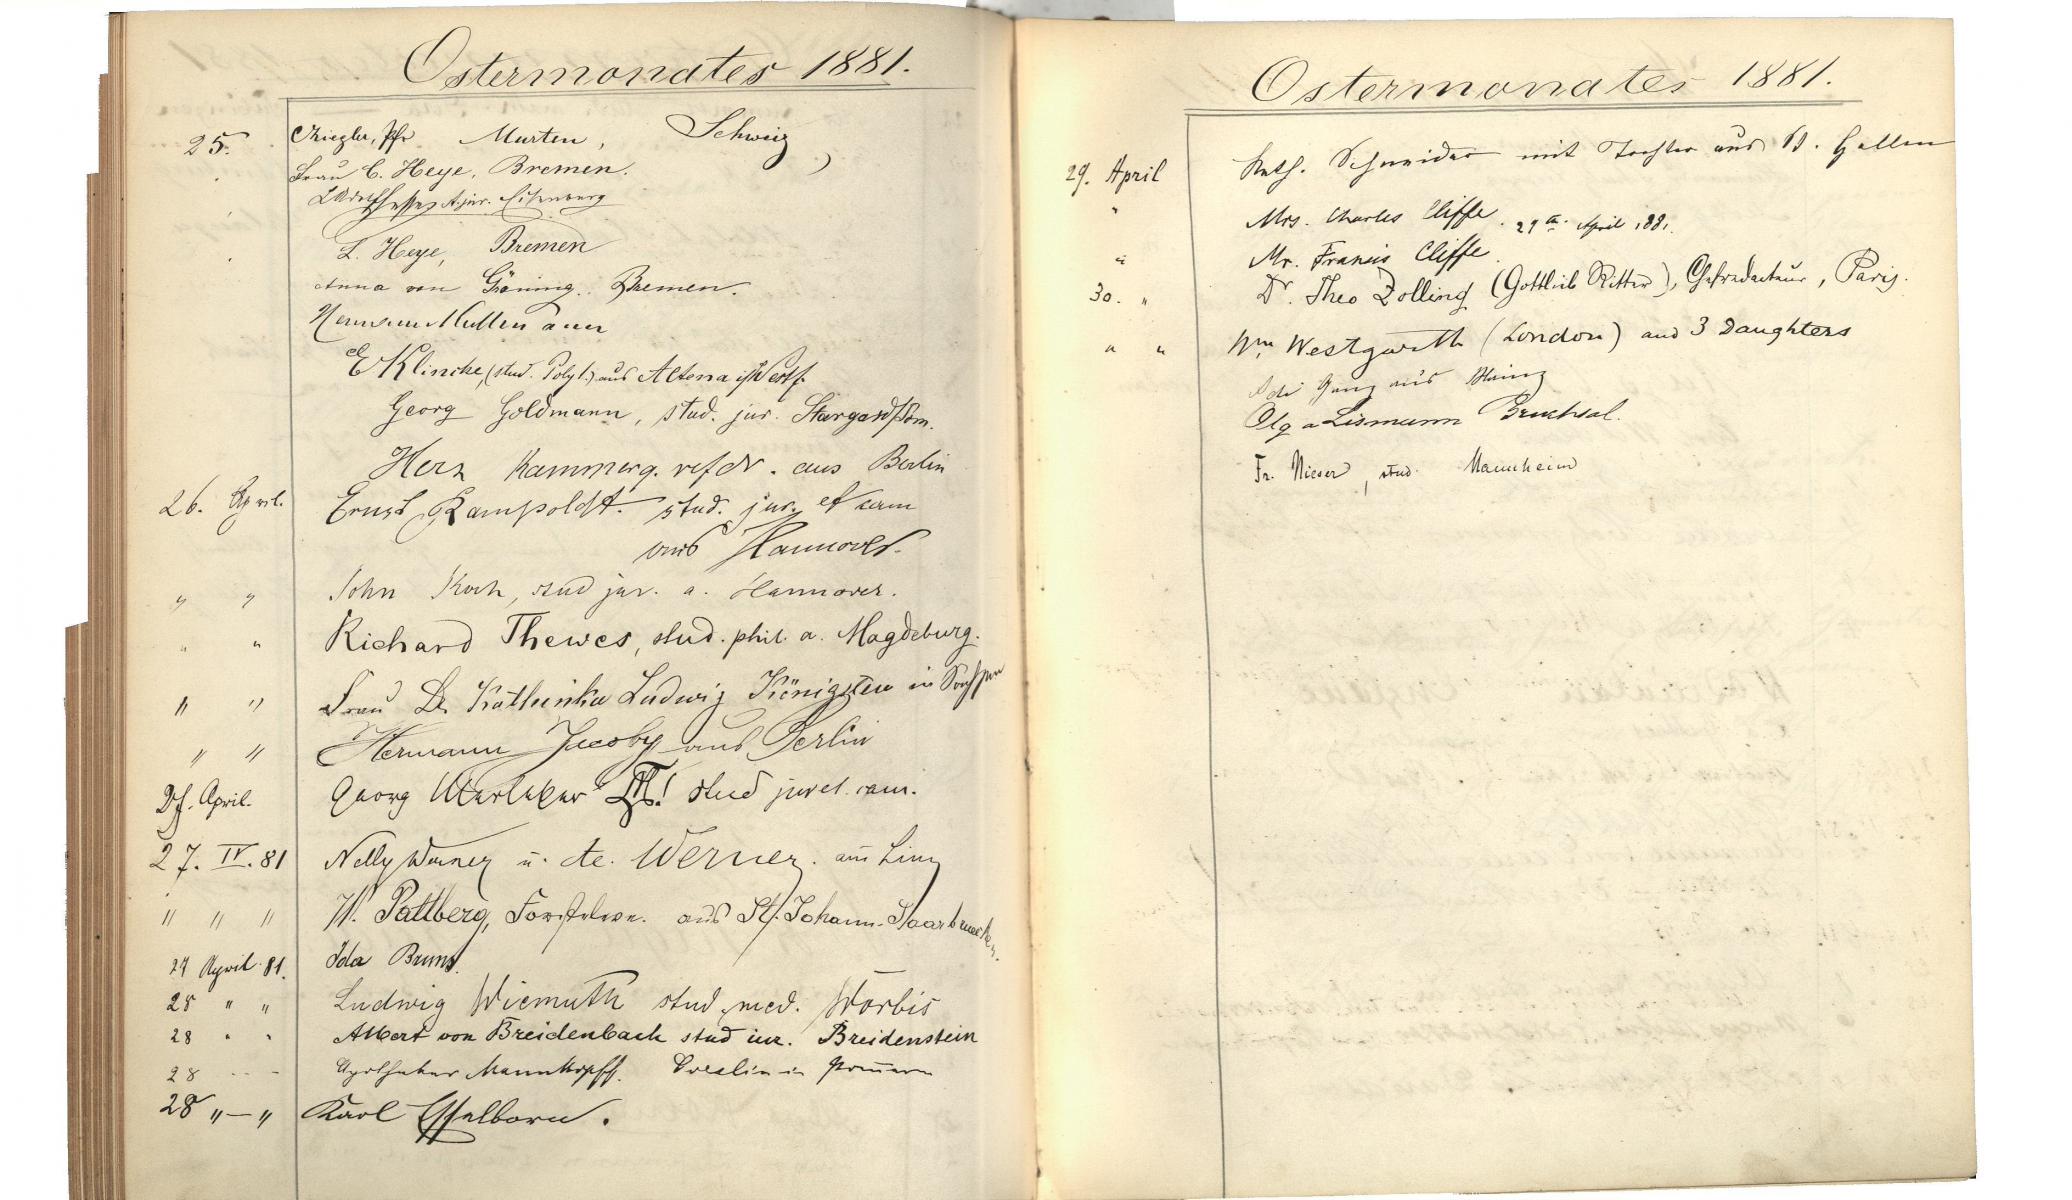 Ostermonates 1881.
25. Ziegler, Pfr Murten, Schweiz
Frau C. Heye, Bremen.
L. Heye, Bremen
Anna von Gröning. Bremen.
Hermann
E Klincke, (stud. Polyt.) aus Altena i/Westf.
Georg Goldmann, stud. jur. Stargard/Pom.
Herz Kammerg. refdr. aus Berlin
26. April. Ernst Rampoldt. stud. jur. et cam
aus Hannover.
" " John Koch, stud jur. a. Hannover.
" " Richard Thewes, stud. phil. a. Magdeburg.
" " Frau Dr. Kathinka Ludwig Königstein in
" " Hermann Jacoby aus Berlin
27. April. Georg stud jur et. cam.
27. IV. 81 Nelly Werner u. Ae. Werner. aus Linz
" " " W. Pattberg, Forsteleve. aus St. Johann-Saarbruecken.
27 April 81. Ida Bruns.
28 " " Ludwig Wiemuth stud. med. Worbis
28 " " Albert von Breidenbach stud iur. Breidenstein
28 - - Apotheker Mannkopff. Coeslin in Pommern
28 " — " Karl Esselborn.
Ostermonates 1881.
29. April Kath. Schneider mit Tochter aus St. Gallen
" Mrs. Charles Cliffe. 29th April 1881.
" Mr. Francis Cliffe.
30. " Dr. Theo Zolling (Gottlieb Ritter), Chefredacteur, Paris.
" " Wm. Westgarth (London) and 3 Daughters
Ganz aus Mainz
Olga Lismann Bruchsal.
Fr. Nieser, stud. Mannheim